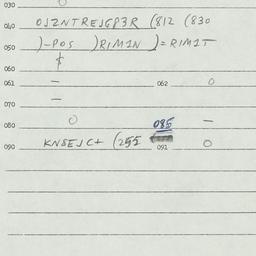 030 O
040 OJZNTREJGP3R (812 (830
050 )-POS )RIM1N )=RIM1T
060 $
061 — 062 O
070 —
080 O 085 —
090 KN8EJC+ (255 091 O